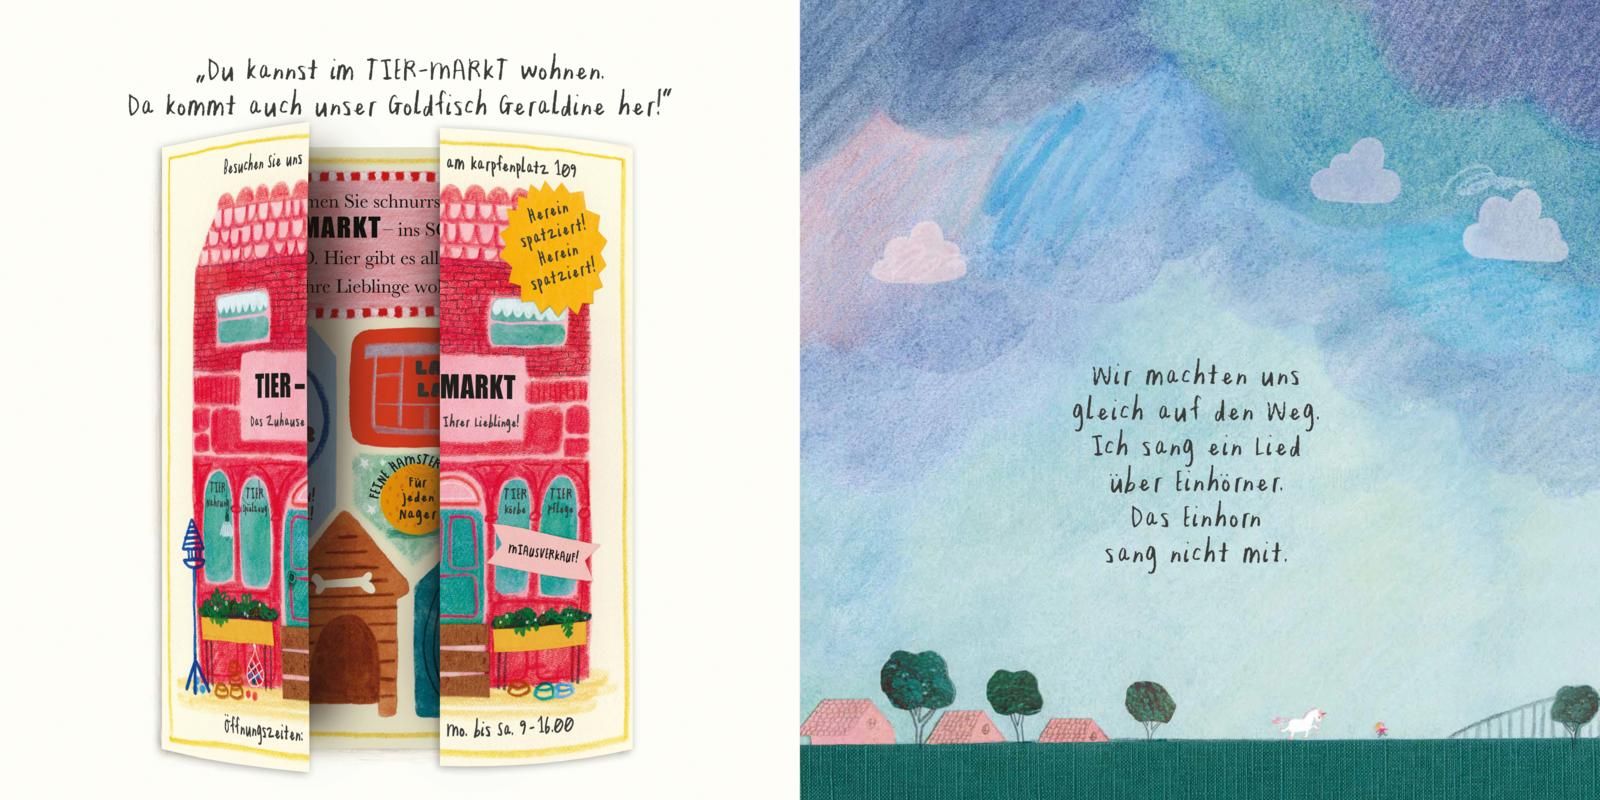 „Du kannst im TIER-MARKT wohnen.
Da kommt auch unser Goldfisch Geraldine her!“
Besuchen Sie uns
am Karpfenplatz 109
Herein
spatziert!
Herein
spatziert!
Sie schnurrs
MARKT – ins
Hier gibt es all
Lieblinge
TIER-
MARKT
Das Zuhause
Ihrer Lieblinge!
FEINE HAMSTER
Für
jeden
Nager
TIER
Nahrung
TIER
Spielzeug
TIER
Körbe
TIER
pflege
MIAUSVERKAUF!
Öffnungszeiten:
Mo. bis Sa. 9-16.00
Wir machten uns
gleich auf den Weg.
Ich sang ein Lied
über Einhörner.
Das Einhorn
sang nicht mit.